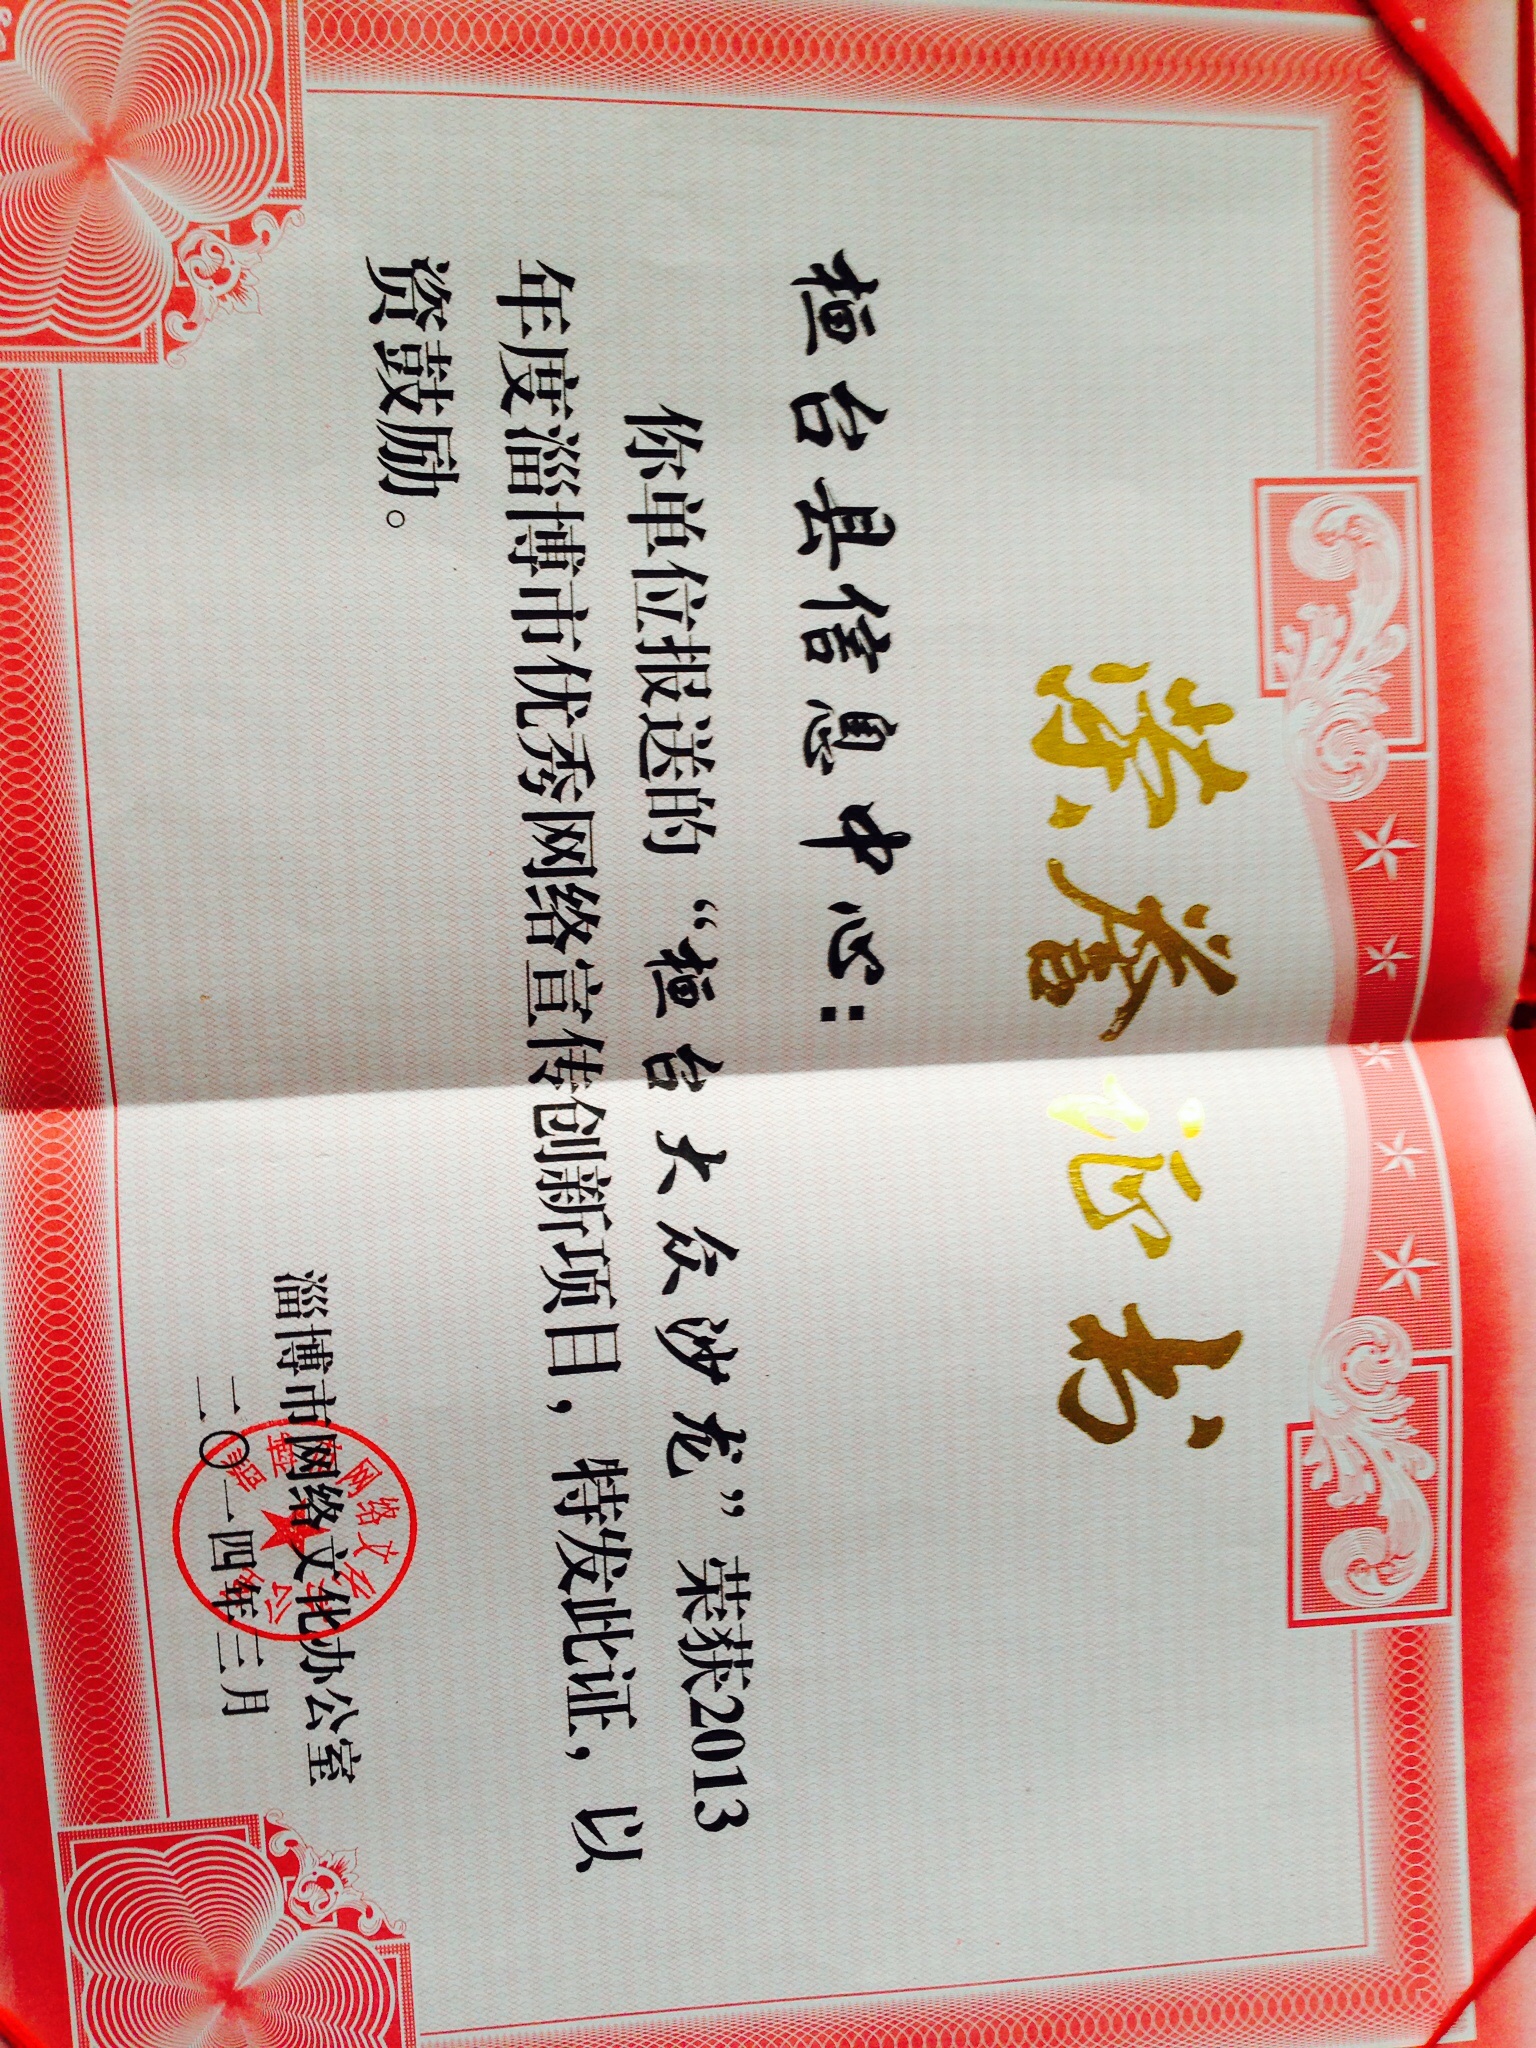 荣誉证书
桓台县信息中心：
你单位报送的“桓台大众沙龙”荣获2013
年度淄博市优秀网络宣传创新项目，特发此证，以
资鼓励。
淄博市网络文化办公室
二〇一四年三月